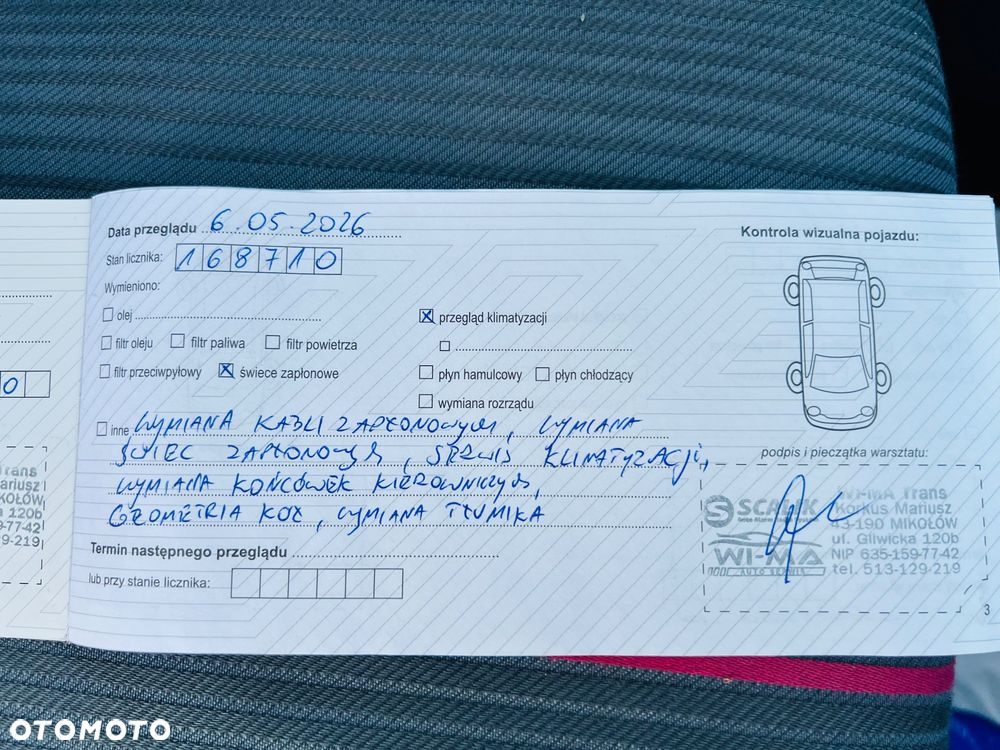 Data przeglądu 6.05.2026
Stan licznika: 168710
Wymieniono:
olej
filtr oleju filtr paliwa filtr powietrza
filtr przeciwpyłowy świece zapłonowe
przegląd klimatyzacji
płyn hamulcowy płyn chłodzący
wymiana rozrządu
inne WYMIANA KABLI ZAPŁONOWYCH, WYMIANA
ŚWIEC ZAPŁONOWYCH, SERWIS KLIMATYZACJI,
WYMIANA KOŃCÓWEK KIEROWNICZYCH,
GEOMETRIA KÓŁ, WYMIANA TŁUMIKA
Termin następnego przeglądu
lub przy stanie licznika:
Kontrola wizualna pojazdu:
podpis i pieczątka warsztatu:
WI-MA Trans
Korkus Mariusz
43-190 MIKOŁÓW
ul. Gliwicka 120b
NIP 635-159-77-42
tel. 513-129-219
WI-MA
AUTO SERWIS
3
0
Trans
ariusz
KOŁÓW
a 120b
9-77-42
29-219
OTOMOTO